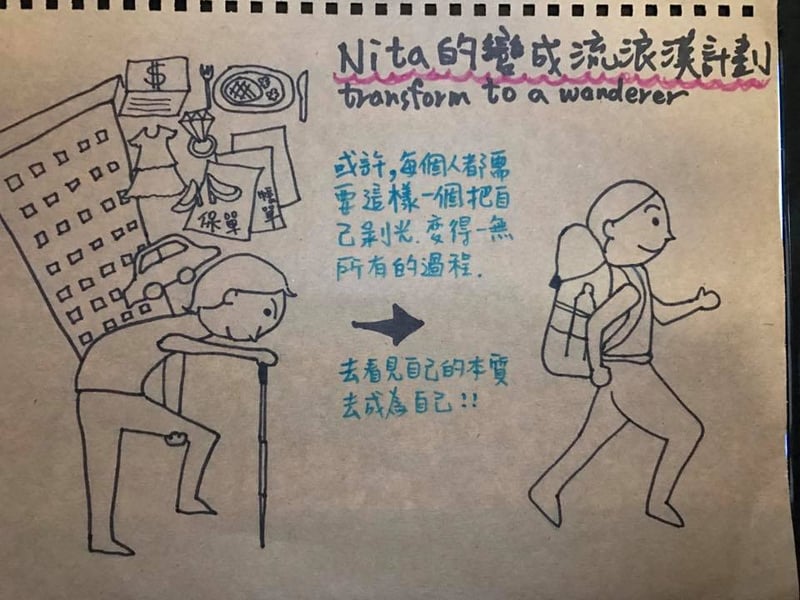 Nita的變成流浪漢計劃
transform to a wanderer
$
保單
帳單
或許,每個人都需
要這樣一個把自
己剝光.變得一無
所有的過程.
去看見自己的本質
去成為自己!!